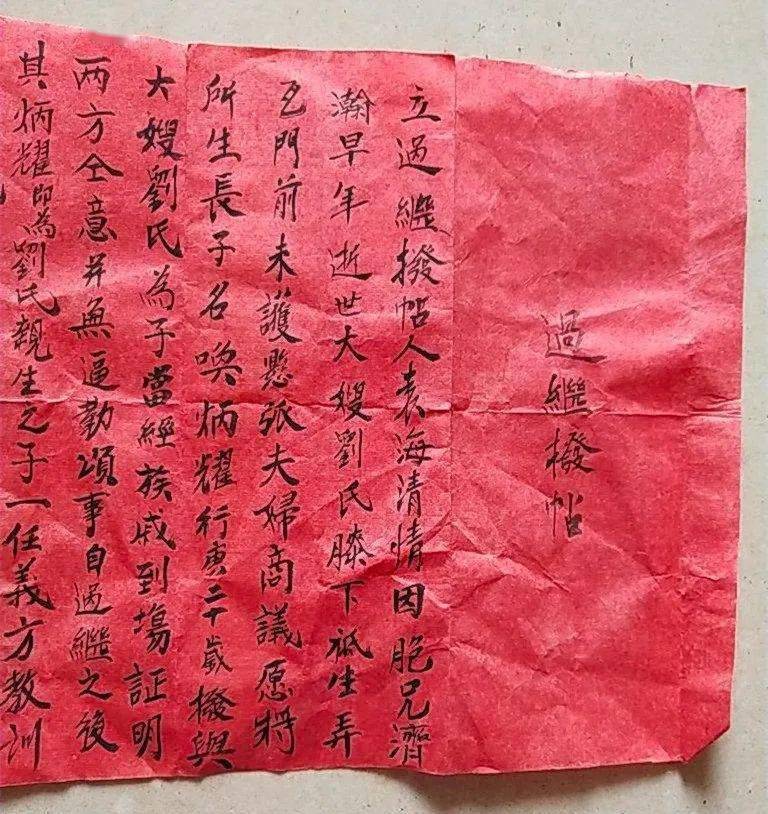 過繼撥帖
立過繼撥帖人袁海清情因胞兄濟
瀚早年逝世大嫂劉氏膝下祗生弄
瓦門前未護懸弧夫婦商議愿將
所生長子名喚炳耀行庚二十歲撥與
大嫂劉氏為子當經族戚到塲証明
两方仝意并無逼勒煩事自過繼之後
其炳耀即為劉氏親生之子一任義方教訓